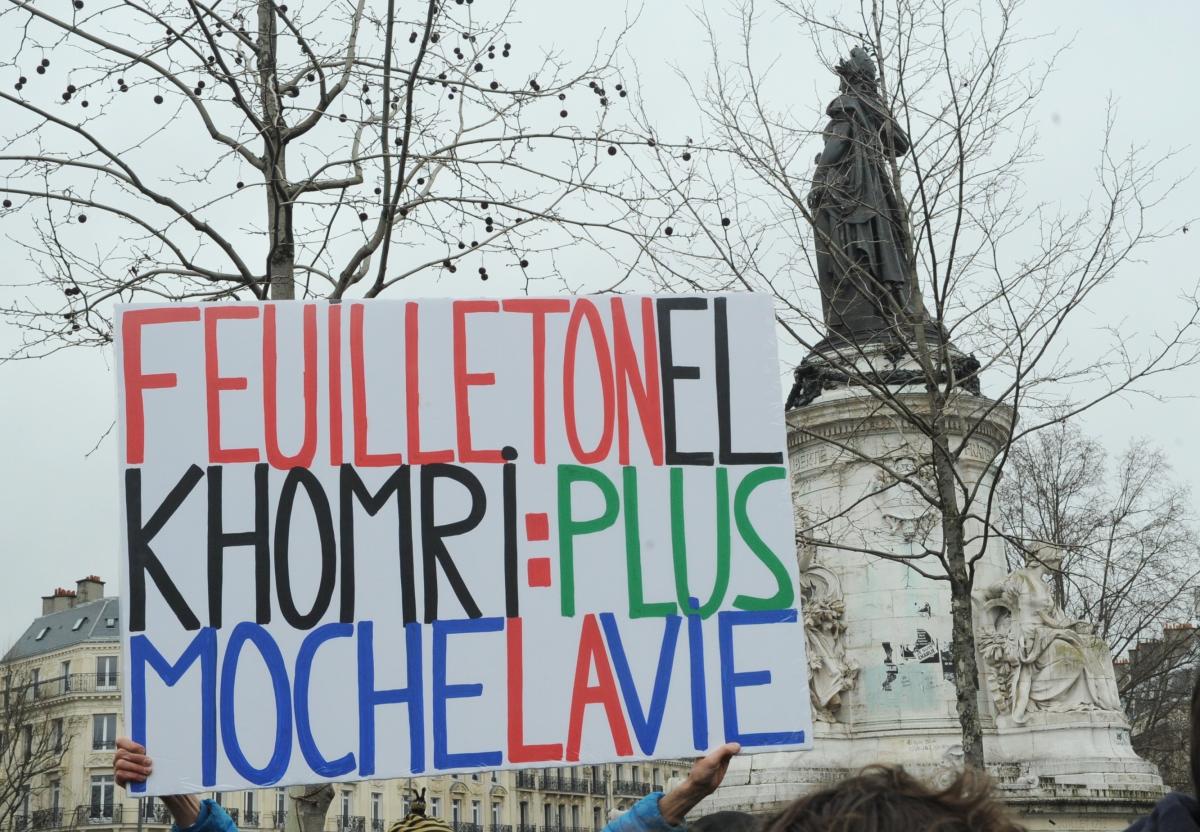 FEUILLETON EL
KHOMRi : PLUS
MOCHE LA ViE